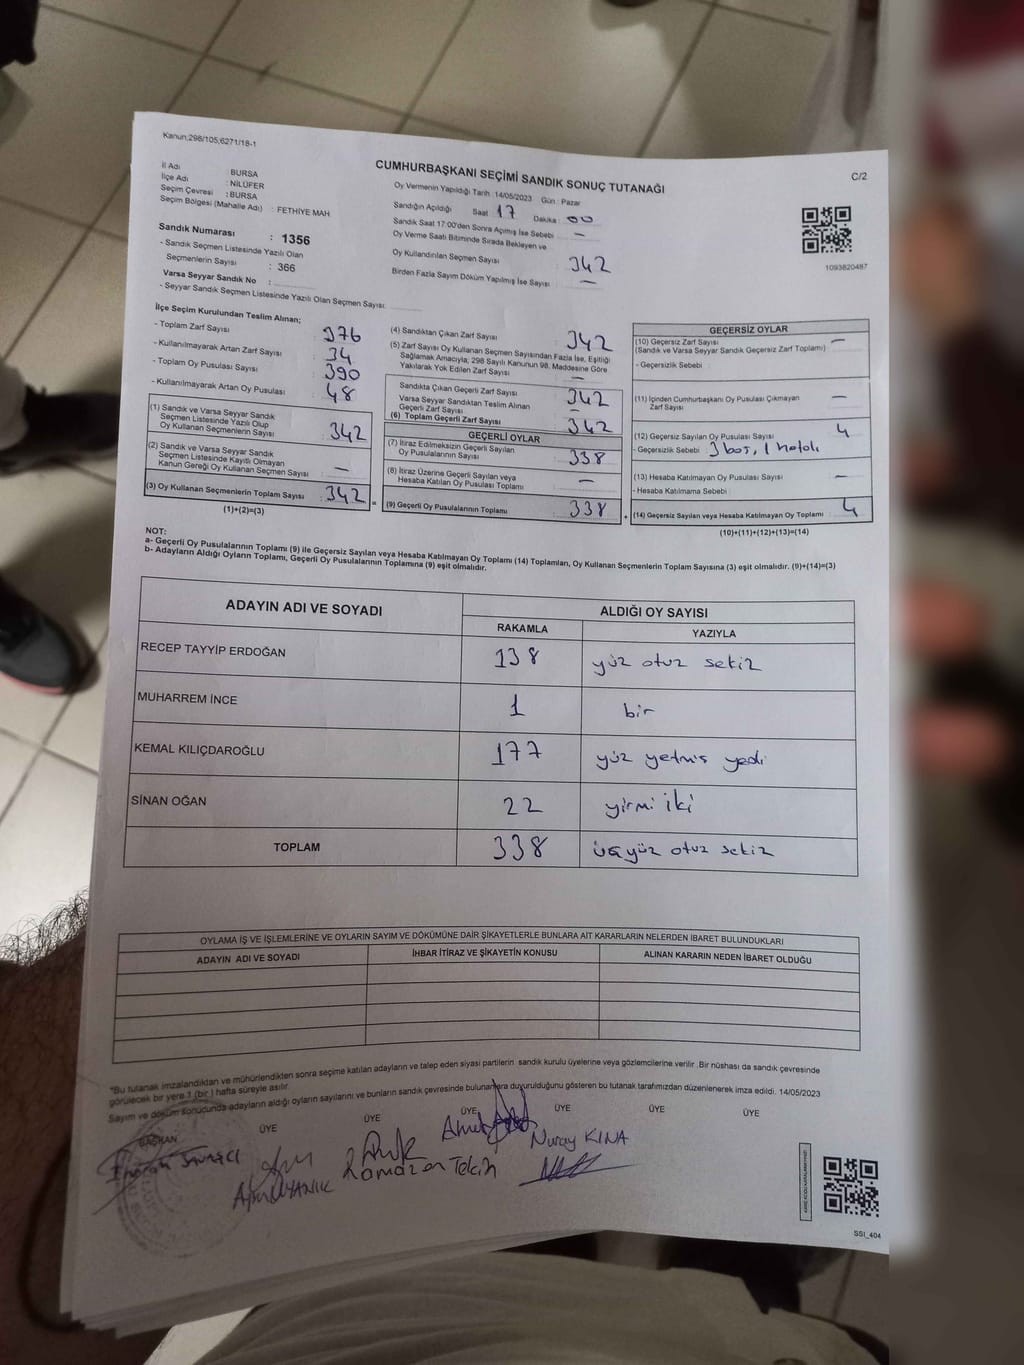 Kanun;298/105,6271/18-1
CUMHURBAŞKANI SEÇİMİ SANDIK SONUÇ TUTANAĞI
C/2
İl Adı : BURSA
İlçe Adı : NİLÜFER
Seçim Çevresi : BURSA
Seçim Bölgesi (Mahalle Adı) : FETHİYE MAH.
Sandık Numarası : 1356
- Sandık Seçmen Listesinde Yazılı Olan
Seçmenlerin Sayısı : 366
Varsa Seyyar Sandık No :
- Seyyar Sandık Seçmen Listesinde Yazılı Olan Seçmen Sayısı:
Oy Vermenin Yapıldığı Tarih: 14/05/2023 Gün : Pazar
Sandığın Açıldığı Saat : 17 Dakika : 00
Sandık Saat 17:00'den Sonra Açımış İse Sebebi : –
Oy Verme Saati Bitiminde Sırada Bekleyen ve
Oy Kullandırılan Seçmen Sayısı : 342
Birden Fazla Sayım Döküm Yapılmış İse Sayısı : –
1093820487
İlçe Seçim Kurulundan Teslim Alınan;
- Toplam Zarf Sayısı : 376
- Kullanılmayarak Artan Zarf Sayısı : 34
- Toplam Oy Pusulası Sayısı : 390
- Kullanılmayarak Artan Oy Pusulası : 48
(1) Sandık ve Varsa Seyyar Sandık
Seçmen Listesinde Yazılı Olup
Oy Kullanan Seçmenlerin Sayısı : 342
(2) Sandık ve Varsa Seyyar Sandık
Seçmen Listesinde Kayıtlı Olmayan
Kanun Gereği Oy Kullanan Seçmen Sayısı : –
(3) Oy Kullanan Seçmenlerin Toplam Sayısı : 342 =
(1)+(2)=(3)
(4) Sandıktan Çıkan Zarf Sayısı : 342
(5) Zarf Sayısı Oy Kullanan Seçmen Sayısından Fazla İse, Eşitliği
Sağlamak Amacıyla, 298 Sayılı Kanunun 98. Maddesine Göre
Yakılarak Yok Edilen Zarf Sayısı : –
Sandıkta Çıkan Geçerli Zarf Sayısı : 342
Varsa Seyyar Sandıktan Teslim Alınan
Geçerli Zarf Sayısı : –
(6) Toplam Geçerli Zarf Sayısı : 342
GEÇERLİ OYLAR
(7) İtiraz Edilmeksizin Geçerli Sayılan
Oy Pusulalarının Sayısı : 338
(8) İtiraz Üzerine Geçerli Sayılan veya
Hesaba Katılan Oy Pusulası Toplamı : –
(9) Geçerli Oy Pusulalarının Toplamı : 338 +
GEÇERSİZ OYLAR
(10) Geçersiz Zarf Sayısı : –
(Sandık ve Varsa Seyyar Sandık Geçersiz Zarf Toplamı)
- Geçersizlik Sebebi :
(11) İçinden Cumhurbaşkanı Oy Pusulası Çıkmayan : –
Zarf Sayısı
(12) Geçersiz Sayılan Oy Pusulası Sayısı : 4
- Geçersizlik Sebebi : 3 boş, 1 hatalı
(13) Hesaba Katılmayan Oy Pusulası Sayısı : –
- Hesaba Katılmama Sebebi :
(14) Geçersiz Sayılan veya Hesaba Katılmayan Oy Toplamı : 4
(10)+(11)+(12)+(13)=(14)
NOT:
a- Geçerli Oy Pusulalarının Toplamı (9) ile Geçersiz Sayılan veya Hesaba Katılmayan Oy Toplamı (14) Toplamları, Oy Kullanan Seçmenlerin Toplam Sayısına (3) eşit olmalıdır. (9)+(14)=(3)
b- Adayların Aldığı Oyların Toplamı, Geçerli Oy Pusulalarının Toplamına (9) eşit olmalıdır.
ADAYIN ADI VE SOYADI ALDIĞI OY SAYISI
RAKAMLA YAZIYLA
RECEP TAYYİP ERDOĞAN 138 yüz otuz sekiz
MUHARREM İNCE 1 bir
KEMAL KILIÇDAROĞLU 177 yüz yetmiş yedi
SİNAN OĞAN 22 yirmi iki
TOPLAM 338 üçyüz otuz sekiz
OYLAMA İŞ VE İŞLEMLERİNE VE OYLARIN SAYIM VE DÖKÜMÜNE DAİR ŞİKAYETLERLE BUNLARA AİT KARARLARIN NELERDEN İBARET BULUNDUKLARI
ADAYIN ADI VE SOYADI İHBAR İTİRAZ VE ŞİKAYETİN KONUSU ALINAN KARARIN NEDEN İBARET OLDUĞU
*Bu tutanak imzalandıktan ve mühürlendikten sonra seçime katılan adayların ve talep eden siyasi partilerin sandık kurulu üyelerine veya gözlemcilerine verilir. Bir nüshası da sandık çevresinde
görülecek bir yere 1 (bir) hafta süreyle asılır.
Sayım ve döküm sonucunda adayların aldığı oyların sayılarını ve bunların sandık çevresinde bulunanlara duyurulduğunu gösteren bu tutanak tarafımızdan düzenlenerek imza edildi. 14/05/2023
BAŞKAN ÜYE ÜYE ÜYE ÜYE ÜYE ÜYE
Ramazan Tekin
Nuray KINA
SSI_404